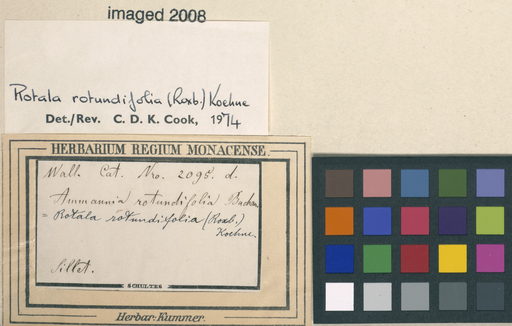 imaged 2008
Rotala rotundifolia (Roxb.) Koehne
Det./Rev. C. D. K. Cook, 1974
HERBARIUM REGIUM MONACENSE.
Wall. Cat. Nro. 2095. d.
Ammannia rotundifolia Buchan.
= Rotala rotundifolia (Roxb.)
Koehne.
Sillet.
SCHULTES
Herbar. Kummer.